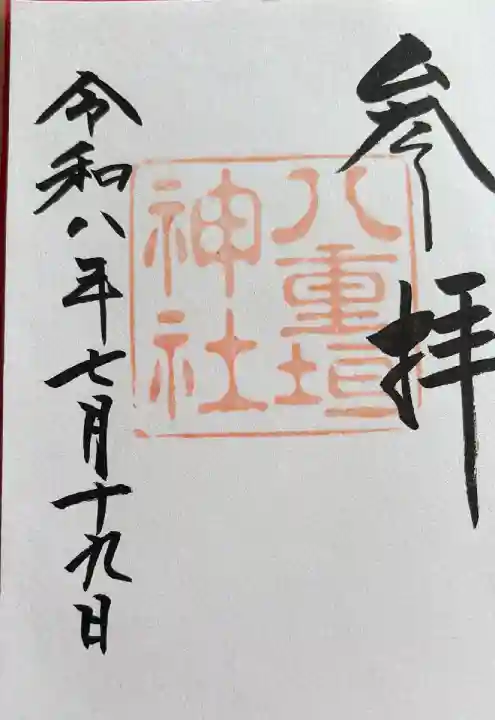 参拝
八重垣
神社
令和八年七月十九日